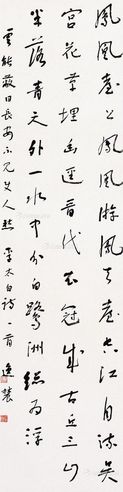 鳳凰臺上鳳凰遊鳳去臺空江自流吳
宮花草埋幽逕晉代衣冠成古丘三山
半落青天外一水中分白鷺洲總為浮
雲能蔽日長安不見使人愁 李太白詩一首